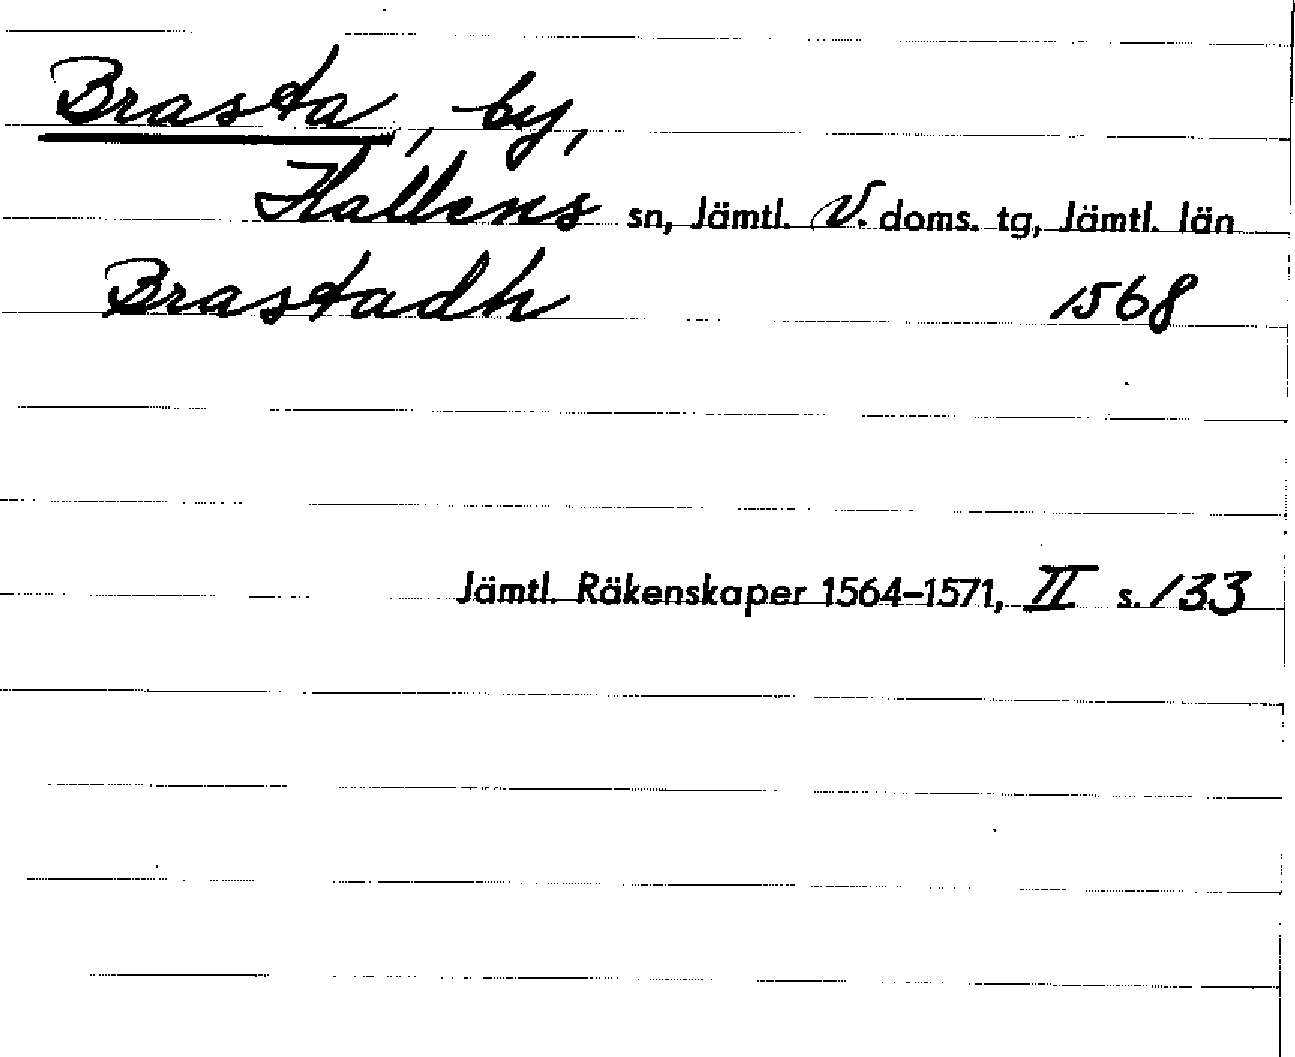 Brasta, by,
Hallens sn, Jämtl. V. doms. tg, Jämtl. län
Brastadh 1568
Jämtl. Räkenskaper 1564–1571, II s. 133